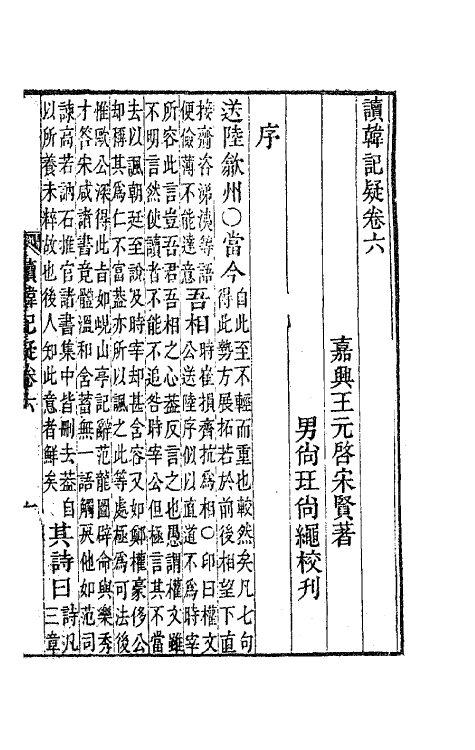 讀韓記疑卷六
嘉興王元啓宋賢著
男尙玨尙繩校刋
序
送陸歙州○當今
自此至不輕而重也較然矣凡七句
得此勢方展拓若於前後相望下直
接齎咨涕洟等語
便儉薄不能達意
吾相
時崔損齊抗爲相○印曰權文
公送陸序似以直道不爲時宰
所容此言豈吾君吾相之心葢反言之也愚謂權文雖
不明言然使讀者不能不追咎時宰公但極言其不當
去以諷朝廷至說及時宰却甚含容又如鄭權豪侈公
却稱其爲仁不富葢亦所以諷之此等處極爲可法後
惟歐公深得此旨如峴山亭記辭范龍圖辟命與樂秀
才答宋咸諸書竟體溫和含蓄無一語觸戾他如范司
諫高若訥石推官諸書集中皆刪去葢自
以所養未粹故也後人知此意者鮮矣
其詩曰
詩凡
三章
讀韓記疑卷六
一